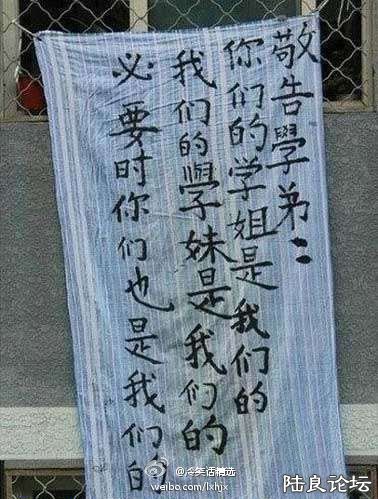 敬告學弟：
你们的学姐是我们的
我们的學妹是我们的
必要时你们也是我们的
@冷笑话精选
weibo.com/lxhjx
陆良论坛